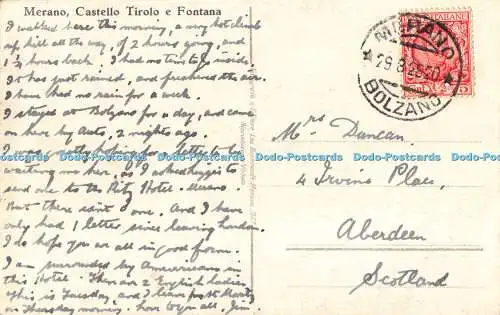 Merano, Castello Tirolo e Fontana
I walked here this morning, a very hot climb
up hill all the way, of 2 hours going, and
1½ hours back. I had no time to go inside.
It has just rained, and freshened the air.
I have had no rain for a week.
I stayed at Bolzano for a day, and came
on here by Auto, 2 nights ago.
I was greatly hoping for a letter to be
waiting me here, as I asked you to
send one to the Ritz Hotel - Merano.
But there isn't one. And I have
only had 1 letter since leaving London.
I do hope you are all in good form.
I am surrounded by Americans in
this Hotel. There are 2 English ladies
This is Tuesday, and I leave for St Moritz
on Thursday morning. Love to you all, Jim.
MERANO
29.8.25
BOLZANO
ITALIANE
Mrs Duncan.
4 Irvine Place,
Aberdeen
Scotland
Dodo-Postcards Dodo-Postcards Dodo-Postcards Dodo-Postcards Dodo-Postcards